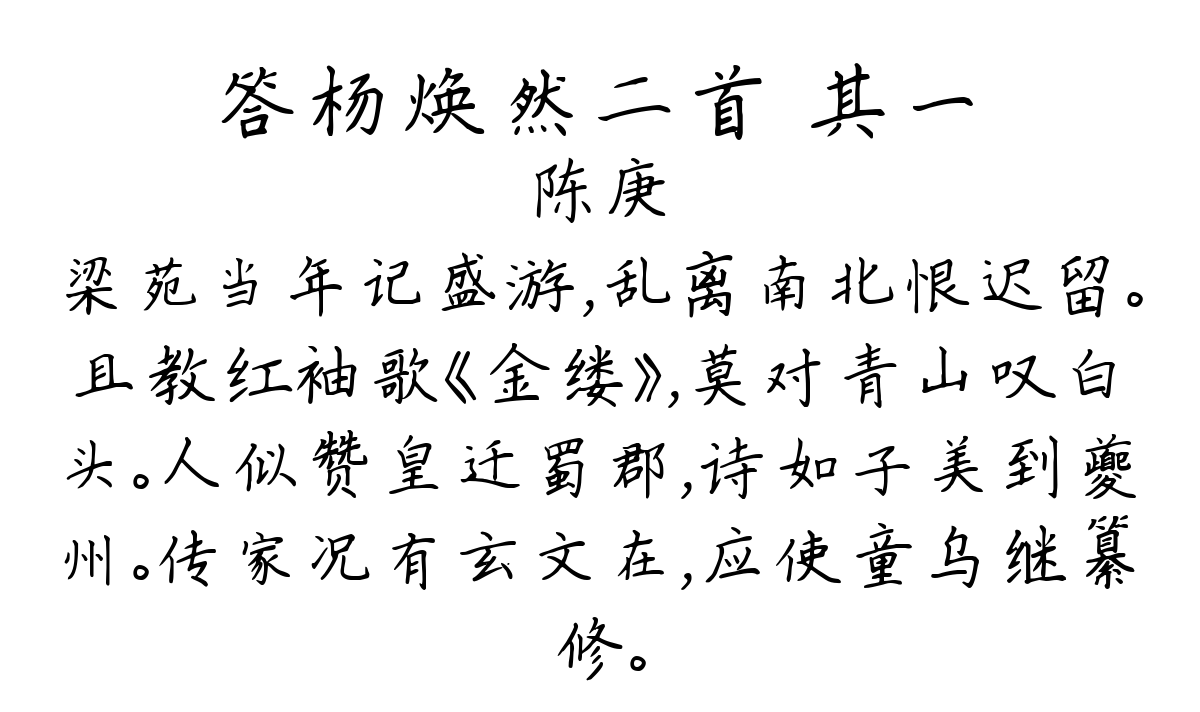 答杨焕然二首 其一
陈庚
梁苑当年记盛游,乱离南北恨迟留。
且教红袖歌《金缕》,莫对青山叹白
头。人似赞皇迁蜀郡,诗如子美到夔
州。传家况有玄文在,应使童乌继纂
修。